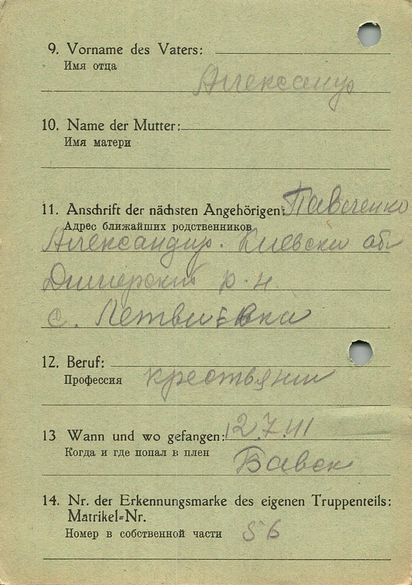 9. Vorname des Vaters:
Имя отца
Александр
10. Name der Mutter:
Имя матери
11. Anschrift der nächsten Angehörigen:
Адрес ближайших родственников
Александир. Киевски обл
Димерский р-н
с.
12. Beruf:
Профессия крестьянин
13 Wann und wo gefangen: 12.7.41
Когда и где попал в плен
14. Nr. der Erkennungsmarke des eigenen Truppenteils:
Matrikel=Nr.
Номер в собственной части 56